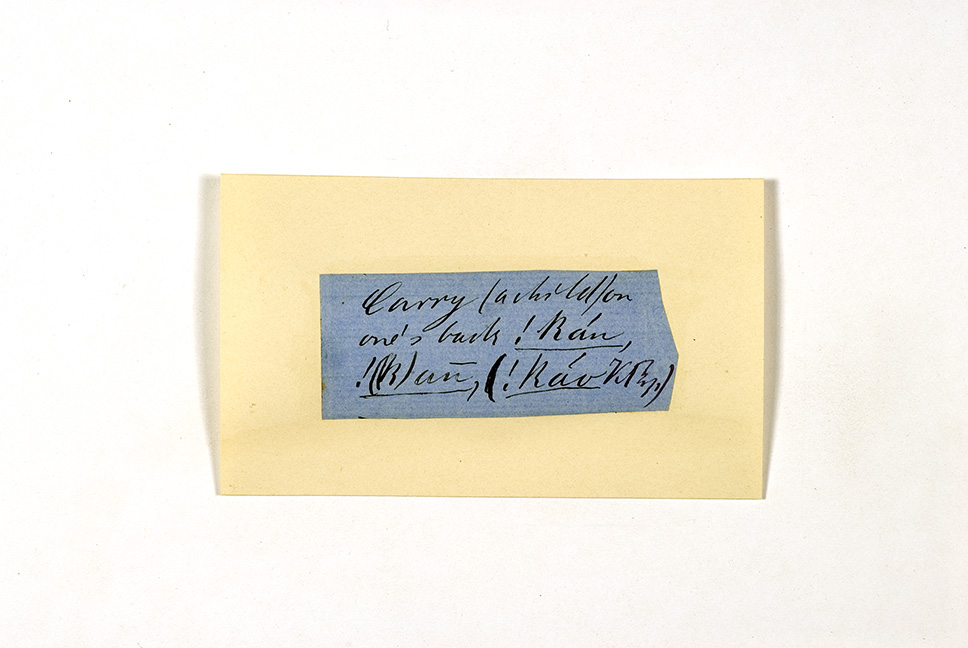 Carry (a child) on
one's back !kán,
!(k)au̅n̅, (!káo